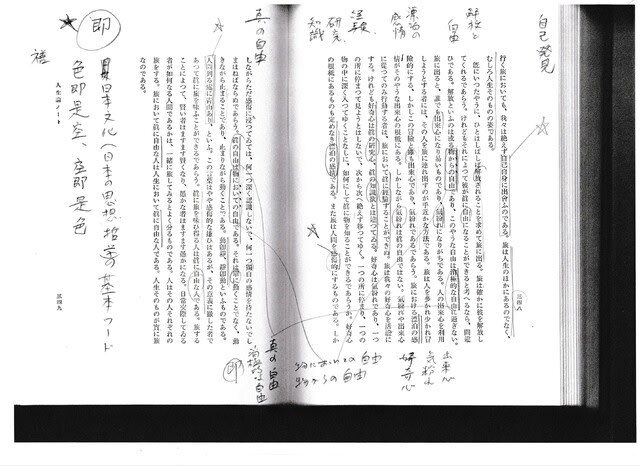 自己発見
解放と自由
漂泊の感情
経験
研究
知識
三四八
行く旅においても、我々は絶えず自己自身に出會ふのである。旅は人生のほかにあるのでなく、
むしろ人生そのものの姿である。
既にいつたやうに、ひとはしばしば解放されることを求めて旅に出る。旅は確かに彼を解放し
てくれるであらう。けれどもそれによつて彼が眞に自由になることができると考へるなら、間違
ひである。解放といふのは或る物からの自由であり、このやうな自由は消極的な自由に過ぎない。
旅に出ると、誰でも出來心になり易いものであり、氣紛れになりがちである。人の出來心を利用
しようとする者には、その人を旅に連れ出すのが手近かな方法である。旅は人を多かれ少かれ冒
險的にする、しかしこの冒險と雖も出來心であり、氣紛れであるであらう。旅における漂泊の感
情がそのやうな出來心の根柢にある。しかしながら氣紛れは眞の自由ではない。氣紛れや出來心
に從つてのみ行動する者は、旅において眞に經驗することができぬ。旅は我々の好奇心を活溌に
する。けれども好奇心は眞の研究心、眞の知識欲とは違つてゐる。好奇心は氣紛れであり、一つ
の所に停まつて見ようとはしないで、次から次へ絶えず移つてゆく。一つの所に停まり、一つの
物の中に深く入つてゆくことなしに、如何にして眞に物を知ることができるであらうか。好奇心
の根柢にあるものも定めなき漂泊の感情である。また旅は人間を感傷的にするものである。しか
出来心
気紛れ
好奇心
物においての自由
物からの自由
真の自由
しながらただ感傷に浸つてゐては、何一つ深く認識しないで、何一つ獨自の感情を持たないでし
まはねばならぬであらう。眞の自由は物においての自由である。それは單に動くことでなく、動
きながら止まることであり、止まりながら動くことである。動即靜、靜即動といふものである。
人間到る處に青山あり、といふ。この言葉はやや感傷的な嫌ひはあるが、その意義に徹した者で
あつて眞に旅を味ふことができるであらう。眞に旅を味ひ得る人は眞に自由な人である。旅する
ことによつて、賢い者はますます賢くなり、愚かな者はますます愚かになる。日常交際してゐる
者が如何なる人間であるかは、一緒に旅してみるとよく分るものである。人はその人それぞれの
旅をする。旅において眞に自由な人は人生において眞に自由な人である。人生そのものが實に旅
なのである。
真の自由
消極的な自由
即
人生論ノート
三四九
即
日本文化(日本の思想・哲学の基本ワード
色即是空 空即是色
禅